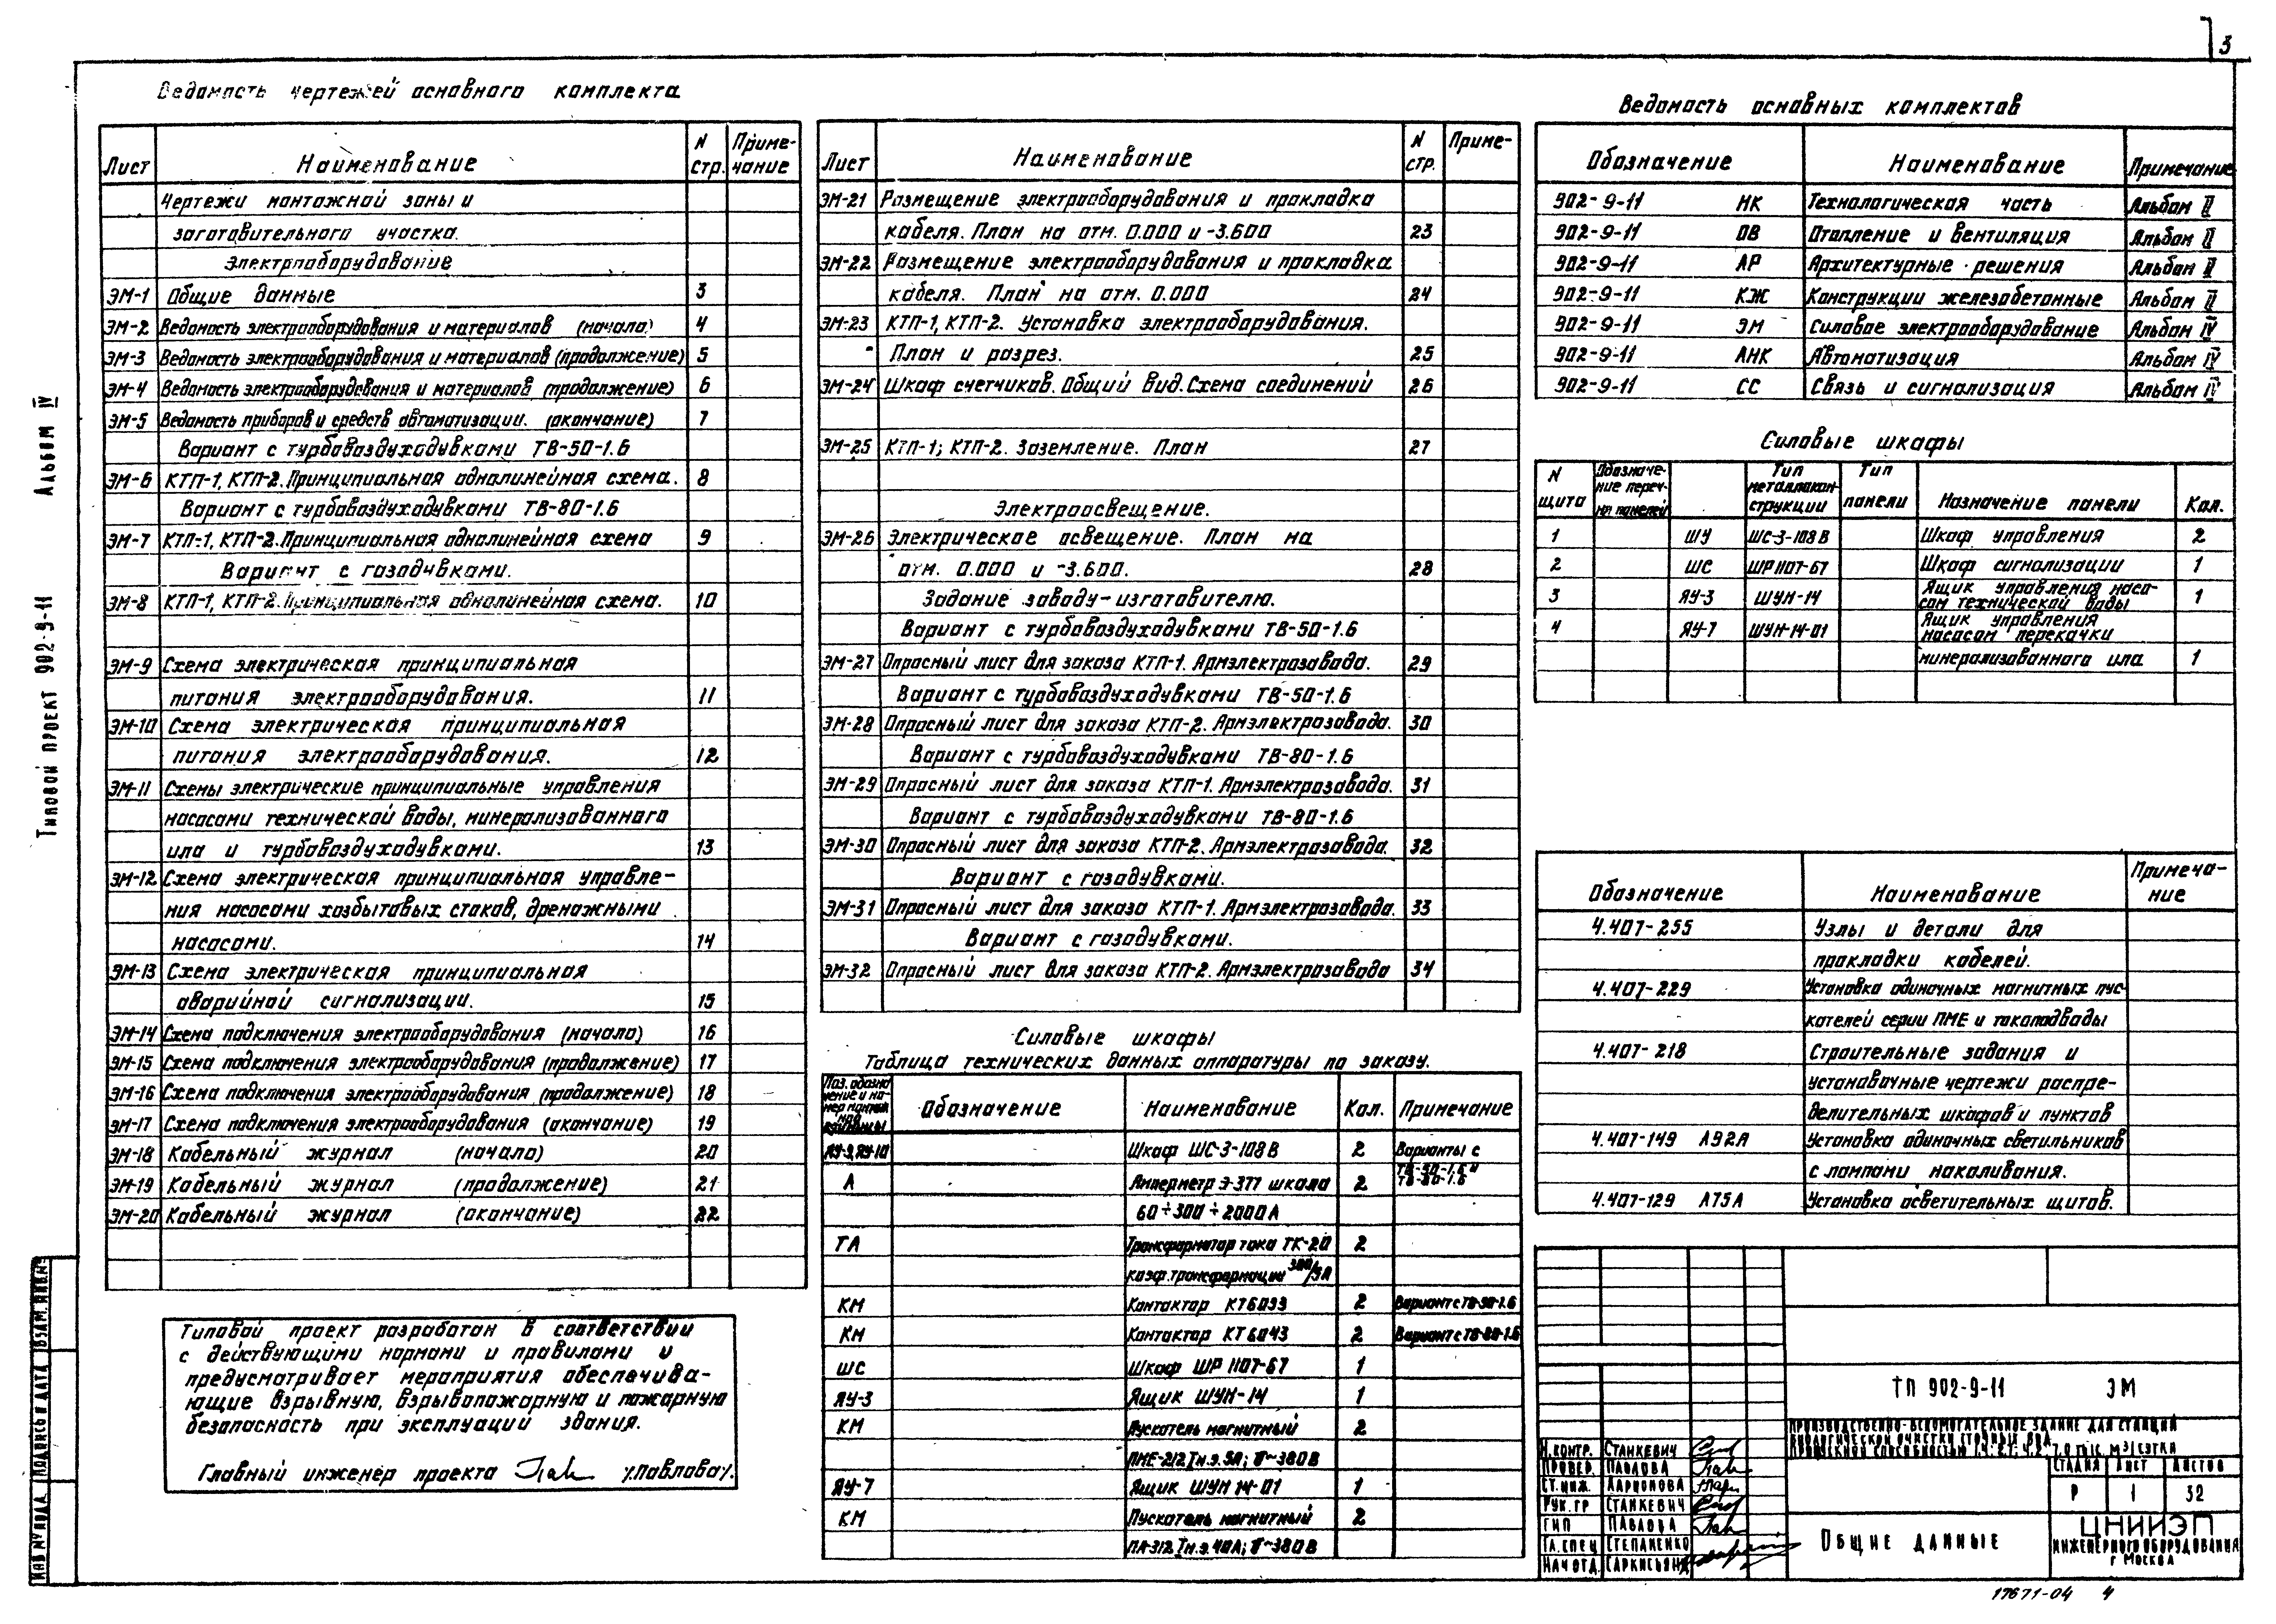 3
Ведомость чертежей основного комплекта
Лист Наименование N стр. Приме-чание
Чертежи монтажной зоны и
заготовительного участка.
Электрооборудование
ЭМ-1 Общие данные 3
ЭМ-2 Ведомость электрооборудования и материалов (начало) 4
ЭМ-3 Ведомость электрооборудования и материалов (продолжение) 5
ЭМ-4 Ведомость электрооборудования и материалов (продолжение) 6
ЭМ-5 Ведомость приборов и средств автоматизации. (окончание) 7
Вариант с турбовоздуходувками ТВ-50-1.6
ЭМ-6 КТП-1, КТП-2. Принципиальная однолинейная схема. 8
Вариант с турбовоздуходувками ТВ-80-1.6
ЭМ-7 КТП-1, КТП-2. Принципиальная однолинейная схема 9
Вариант с газодувками.
ЭМ-8 КТП-1, КТП-2. Принципиальная однолинейная схема. 10
ЭМ-9 Схема электрическая принципиальная
питания электрооборудования. 11
ЭМ-10 Схема электрическая принципиальная
питания электрооборудования. 12
ЭМ-11 Схемы электрические принципиальные управления
насосами технической воды, минерализованного
ила и турбовоздуходувками. 13
ЭМ-12 Схема электрическая принципиальная управле-
ния насосами хозбытовых стоков, дренажными
насосами. 14
ЭМ-13 Схема электрическая принципиальная
аварийной сигнализации. 15
ЭМ-14 Схема подключения электрооборудования (начало) 16
ЭМ-15 Схема подключения электрооборудования (продолжение) 17
ЭМ-16 Схема подключения электрооборудования (продолжение) 18
ЭМ-17 Схема подключения электрооборудования (окончание) 19
ЭМ-18 Кабельный журнал (начало) 20
ЭМ-19 Кабельный журнал (продолжение) 21
ЭМ-20 Кабельный журнал (окончание) 22
Типовой проект разработан в соответствии
с действующими нормами и правилами и
предусматривает мероприятия обеспечива-
ющие взрывную, взрывопожарную и пожарную
безопасность при эксплуаций здания.
Главный инженер проекта /Павлова/.
Лист Наименование N стр. Приме-
ЭМ-21 Размещение электрооборудования и прокладка
кабеля. План на отм. 0.000 и -3.600 23
ЭМ-22 Размещение электрооборудования и прокладка
кабеля. План на отм. 0.000 24
ЭМ-23 КТП-1, КТП-2. Установка электрооборудования.
План и разрез. 25
ЭМ-24 Шкаф счетчиков. Общий вид. Схема соединений 26
ЭМ-25 КТП-1; КТП-2. Заземление. План 27
Электроосвещение.
ЭМ-26 Электрическое освещение. План на
отм. 0.000 и -3.600. 28
Задание заводу-изготовителю.
Вариант с турбовоздуходувками ТВ-50-1.6
ЭМ-27 Опросный лист для заказа КТП-1. Армэлектрозавода. 29
Вариант с турбовоздуходувками ТВ-50-1.6
ЭМ-28 Опросный лист для заказа КТП-2. Армэлектрозавода. 30
Вариант с турбовоздуходувками ТВ-80-1.6
ЭМ-29 Опросный лист для заказа КТП-1. Армэлектрозавода. 31
Вариант с турбовоздуходувками ТВ-80-1.6
ЭМ-30 Опросный лист для заказа КТП-2. Армэлектрозавода. 32
Вариант с газодувками.
ЭМ-31 Опросный лист для заказа КТП-1. Армэлектрозавода. 33
Вариант с газодувками.
ЭМ-32 Опросный лист для заказа КТП-2. Армэлектрозавода 34
Силовые шкафы
Таблица технических данных аппаратуры по заказу.
Обозначение Наименование Кол. Примечание
ЯУ-9, ЯУ-10 Шкаф ШС-3-108В 2 Варианты с ТВ-50-1.6 и ТВ-80-1.6
А Амперметр Э-377 шкала 2
60÷300÷2000А
ТА Трансформатор тока ТК-20 2
коэф. трансформации 300/5А
КМ Контактор КТ6033 2 Вариант с ТВ-50-1.6
КМ Контактор КТ6043 2 Вариант с ТВ-80-1.6
ШС Шкаф ШР 1107-67 1
ЯУ-3 Ящик ШУН-14 1
КМ Пускатель магнитный 2
ПМЕ-212 Iн.э. 5А; U~380В
ЯУ-7 Ящик ШУН 14-01 1
КМ Пускатель магнитный 2
ПА-312 Iн.э. 40А; U~380В
Ведомость основных комплектов
Обозначение Наименование Примечание
902-9-11 НК Технологическая часть Альбом II
902-9-11 ОВ Отопление и вентиляция Альбом II
902-9-11 АР Архитектурные решения Альбом II
902-9-11 КЖ Конструкции железобетонные Альбом II
902-9-11 ЭМ Силовое электрооборудование Альбом IV
902-9-11 АНК Автоматизация Альбом IV
902-9-11 СС Связь и сигнализация Альбом IV
Силовые шкафы
N щита Обозначе-ние переч-ня панелей Тип металлокон-струкции Тип панели Назначение панели Кол.
1 ШУ ШС-3-108В Шкаф управления 2
2 ШС ШР1107-67 Шкаф сигнализации 1
3 ЯУ-3 ШУН-14 Ящик управления насо-сом технической воды 1
4 ЯУ-7 ШУН-14-01 Ящик управления насосом перекачки
минерализованного ила 1
Обозначение Наименование Примеча-ние
4.407-255 Узлы и детали для
прокладки кабелей.
4.407-229 Установка одиночных магнитных пус-
кателей серии ПМЕ и токоподводы
4.407-218 Строительные задания и
установочные чертежи распре-
делительных шкафов и пунктов
4.407-149 А92А Установка одиночных светильников
с лампами накаливания.
4.407-129 А75А Установка осветительных щитов.
ТП 902-9-11 ЭМ
Производственно-вспомогательное здание для станций
биологической очистки сточных вод
пропускной способностью 1,4; 2,7; 4,2; 7,0 тыс. м3/сутки
Н.контр. Станкевич
Провер. Павлова
Ст.инж. Ларионова
Рук.гр Станкевич
ГИП Павлова
Гл.спец Степаненко
Нач отд. Саркисьянц
Стадия Лист Листов
Р 1 32
Общие данные
ЦНИИЭП
инженерного оборудования
г Москва
17671-04 4
Альбом IV
Типовой проект 902-9-11
Взам. инв. №
Подпись и дата
Инв № подл.